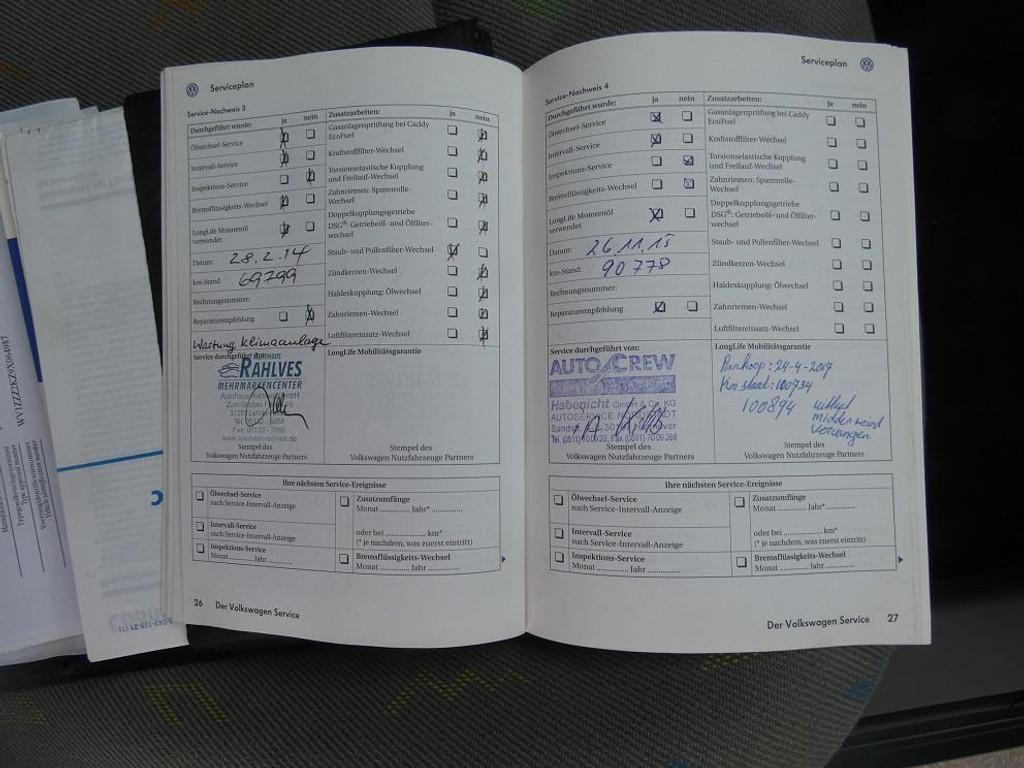 Serviceplan
Service-Nachweis 3
Durchgeführt wurde: ja nein
Ölwechsel-Service
Intervall-Service
Inspektions-Service
Bremsflüssigkeits-Wechsel
LongLife Motorenöl
verwendet
Datum: 28.2.14
km-Stand: 69799
Rechnungsnummer:
Reparaturempfehlung
Wartung Klimaanlage
Service durchgeführt
AUTOHAUS
RAHLVES
MEHRMARKENCENTER
www.autohaus-rahlves.de
Stempel des
Volkswagen Nutzfahrzeuge Partners
Zusatzarbeiten: ja nein
Gasanlagenprüfung bei Caddy
EcoFuel
Kraftstofffilter-Wechsel
Torsionselastische Kupplung
und Freilauf-Wechsel
Zahnriemen: Spannrolle-
Wechsel
Doppelkupplungsgetriebe
DSG®: Getriebeöl- und Ölfilter-
wechsel
Staub- und Pollenfilter-Wechsel
Zündkerzen-Wechsel
Haldeskupplung: Ölwechsel
Zahnriemen-Wechsel
Luftfiltereinsatz-Wechsel
LongLife Mobilitätsgarantie
Stempel des
Volkswagen Nutzfahrzeuge Partners
Ihre nächsten Service-Ereignisse
Ölwechsel-Service
nach Service-Intervall-Anzeige
Intervall-Service
nach Service-Intervall-Anzeige
Inspektions-Service
Monat ............ Jahr ............
Zusatzumfänge
Monat ............ Jahr* ............
oder bei ............ km*
(* je nachdem, was zuerst eintritt)
Bremsflüssigkeits-Wechsel
Monat ............ Jahr ............
26 Der Volkswagen Service
Serviceplan
Service-Nachweis 4
Durchgeführt wurde: ja nein
Ölwechsel-Service
Intervall-Service
Inspektions-Service
Bremsflüssigkeits-Wechsel
LongLife Motorenöl
verwendet
Datum: 26.11.15
km-Stand: 90778
Rechnungsnummer:
Reparaturempfehlung
Service durchgeführt von:
AUTO CREW
Habenicht GmbH & Co. KG
Stempel des
Volkswagen Nutzfahrzeuge Partners
Zusatzarbeiten: ja nein
Gasanlagenprüfung bei Caddy
EcoFuel
Kraftstofffilter-Wechsel
Torsionselastische Kupplung
und Freilauf-Wechsel
Zahnriemen: Spannrolle-
Wechsel
Doppelkupplungsgetriebe
DSG®: Getriebeöl- und Ölfilter-
wechsel
Staub- und Pollenfilter-Wechsel
Zündkerzen-Wechsel
Haldeskupplung: Ölwechsel
Zahnriemen-Wechsel
Luftfiltereinsatz-Wechsel
LongLife Mobilitätsgarantie
Aankoop: 24-4-2017
Km stand: 100734
100894
Stempel des
Volkswagen Nutzfahrzeuge Partners
Ihre nächsten Service-Ereignisse
Ölwechsel-Service
nach Service-Intervall-Anzeige
Intervall-Service
nach Service-Intervall-Anzeige
Inspektions-Service
Monat ............ Jahr ............
Zusatzumfänge
Monat ............ Jahr* ............
oder bei ............ km*
(* je nachdem, was zuerst eintritt)
Bremsflüssigkeits-Wechsel
Monat ............ Jahr ............
Der Volkswagen Service 27